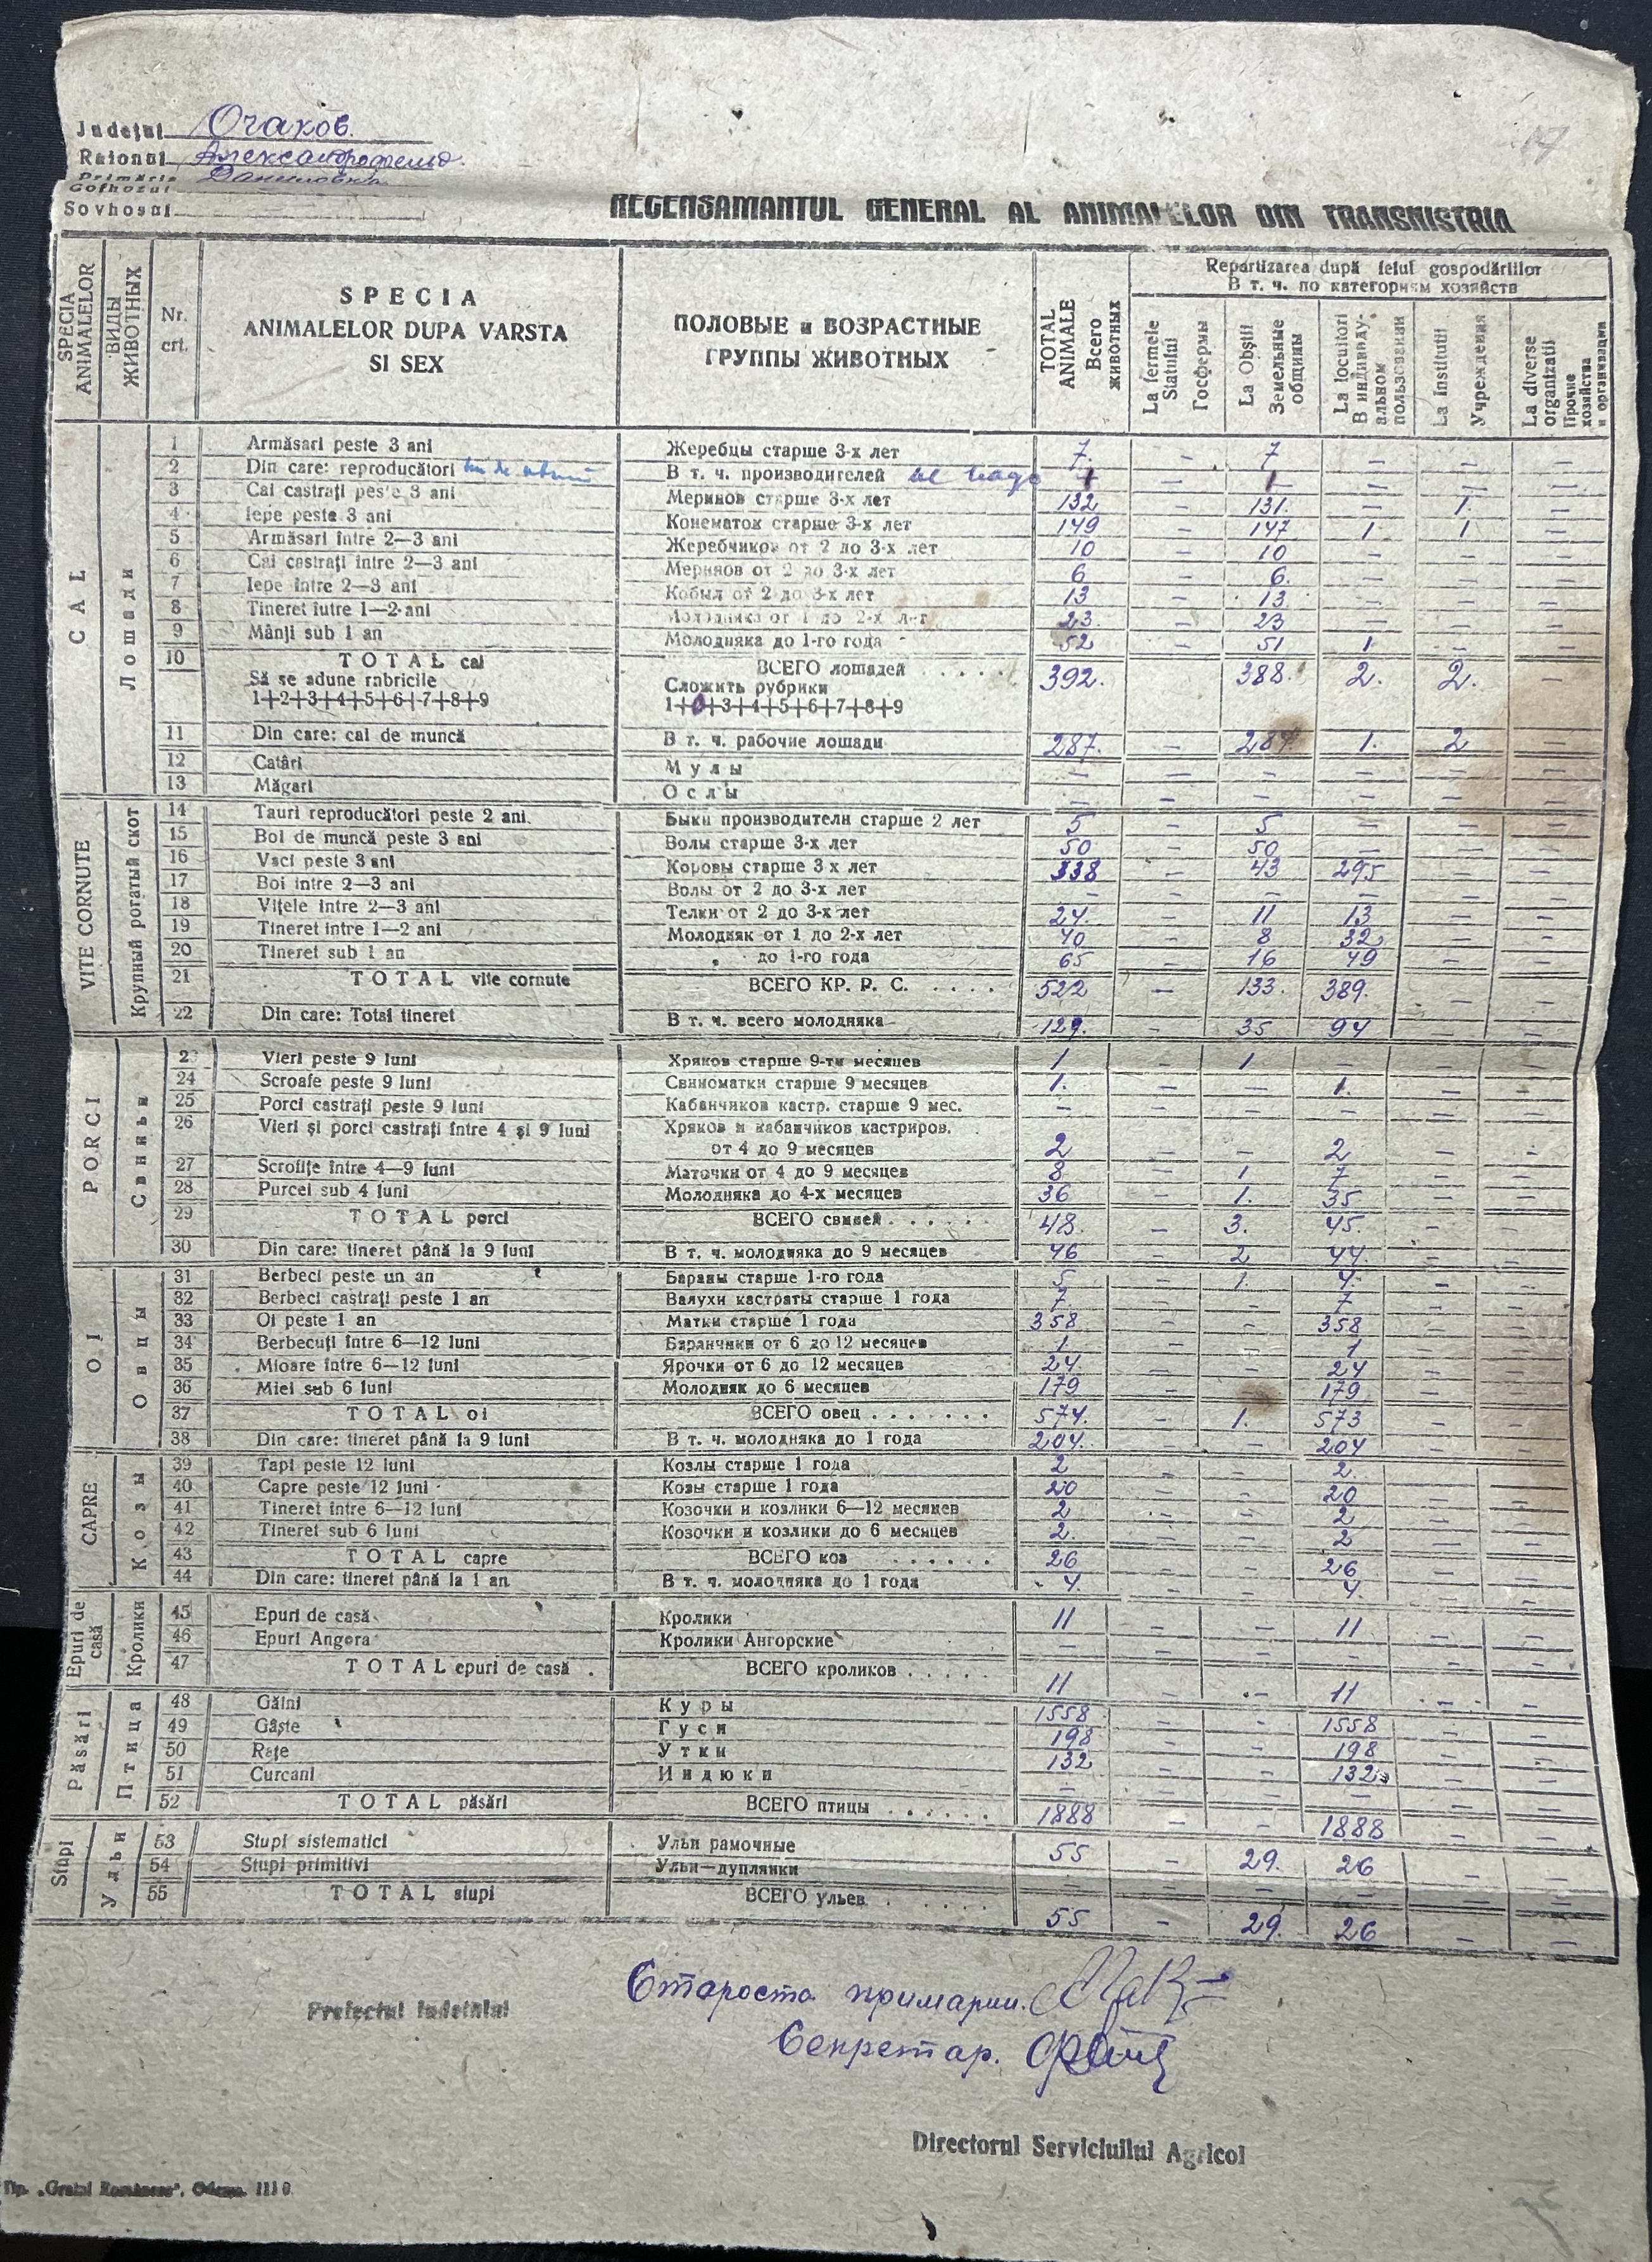 17
Judeţul Очаков.
Raionul Александрофельд.
Primăria Даниловка
Gofhozul
Sovhosul
RECENSAMANTUL GENERAL AL ANIMALELOR DIN TRANSNISTRIA
SPECIA ANIMALELOR ВИДЫ ЖИВОТНЫХ Nr. crt. SPECIA ANIMALELOR DUPA VARSTA SI SEX ПОЛОВЫЕ и ВОЗРАСТНЫЕ ГРУППЫ ЖИВОТНЫХ TOTAL ANIMALE Всего животных Repartizarea după felul gospodăriilor
В т. ч. по категориям хозяйств
La fermele Statului Госфермы La Obştii Земельные общины La locuitori В индивидуальном пользовании La institutii Учреждения La diverse organizatii Прочие хозяйства и организации
CAL Лошади
1 Armăsari peste 3 ani Жеребцы старше 3-х лет 7. – 7 – – –
2 Din care: reproducători В т. ч. производителей не надо 1 – 1 – – –
3 Cai castraţi peste 3 ani Меринов старше 3-х лет 132 – 131. – 1. –
4 Iepe peste 3 ani Конематок старше 3-х лет 149 – 147 1 1 –
5 Armăsari intre 2—3 ani Жеребчиков от 2 до 3-х лет 10 – 10 – – –
6 Cai castraţi intre 2—3 ani Меринов от 2 до 3-х лет 6 – 6. – – –
7 Iepe intre 2—3 ani Кобыл от 2 до 3-х лет 13 – 13. – – –
8 Tineret iutre 1—2 ani Молодняка от 1 до 2-х лет 23. – 23 – – –
9 Mânji sub 1 an Молодняка до 1-го года 52 – 51 1. – –
10 TOTAL cal ВСЕГО лошадей . . . . 392. – 388. 2. 2. –
Să se adune rabricile Сложить рубрики
1+2+3+4+5+6+7+8+9 1+0+3+4+5+6+7+8+9
11 Din care: cal de muncă В т. ч. рабочие лошади 287. – 284 1. 2 –
12 Catâri Мулы – – – – – –
13 Măgari Ослы – – – – – –
VITE CORNUTE Крупный рогатый скот
14 Tauri reproducători peste 2 ani. Быки производители старше 2 лет 5 – 5 – – –
15 Boi de muncă peste 3 ani Волы старше 3-х лет 50 – 50 – – –
16 Vaci peste 3 ani Коровы старше 3 х лет 338 – 43 295 – –
17 Boi intre 2—3 ani Волы от 2 до 3-х лет – – – – – –
18 Viţele intre 2—3 ani Телки от 2 до 3-х лет 24. – 11 13 – –
19 Tineret intre 1—2 ani Молодняк от 1 до 2-х лет 40 – 8 32 – –
20 Tineret sub 1 an „ до 1-го года 65 – 16 49 – –
21 TOTAL vite cornute ВСЕГО КР. Р. С. . . . . 522 – 133. 389. – –
22 Din care: Total tineret В т. ч. всего молодняка 129. – 35 94 – –
PORCI Свиньи
23 Vieri peste 9 luni Хряков старше 9-ти месяцев 1 – 1 – – –
24 Scroafe peste 9 luni Свиноматки старше 9 месяцев 1. – – 1. – –
25 Porci castraţi peste 9 luni Кабанчиков кастр. старше 9 мес. – – – – – –
26 Vieri şi porci castraţi intre 4 şi 9 luni Хряков и кабанчиков кастриров.
от 4 до 9 месяцев 2 – – 2 – –
27 Scrofiţe intre 4—9 luni Маточки от 4 до 9 месяцев 8 – 1 7 – –
28 Purcei sub 4 luni Молодняка до 4-х месяцев 36 – 1. 35 – –
29 TOTAL porci ВСЕГО свиней . . . . . 48. – 3. 45 –
30 Din care: tineret până la 9 luni В т. ч. молодняка до 9 месяцев 46 – 2 44 –
OI Овцы
31 Berbeci peste un an Бараны старше 1-го года 5 – 1. 4. –
32 Berbeci castraţi peste 1 an Валухи кастраты старше 1 года 7 – – 7 –
33 Oi peste 1 an Матки старше 1 года 358 – – 358 –
34 Berbecuţi intre 6—12 luni Баранчики от 6 до 12 месяцев 1 – – 1 –
35 Mioare intre 6—12 luni Ярочки от 6 до 12 месяцев 24. – – 24 –
36 Miei sub 6 luni Молодняк до 6 месяцев 179 – – 179 –
37 TOTAL oi ВСЕГО овец . . . . . . . 574. – 1. 573 – –
38 Din care: tineret până la 9 luni В т. ч. молодняка до 1 года 204. – – 204 – –
CAPRE Козы
39 Tapi peste 12 luni Козлы старше 1 года 2 – – 2. – –
40 Capre peste 12 luni Козы старше 1 года 20 – – 20 – –
41 Tineret intre 6—12 luni Козочки и козлики 6—12 месяцев 2 – – 2 – –
42 Tineret sub 6 luni Козочки и козлики до 6 месяцев 2. – – 2 – –
43 TOTAL capre ВСЕГО коз . . . . . . 26 – – 26 – –
44 Din care: tineret până la 1 an В т. ч. молодняка до 1 года 4. – – 4. – –
Epuri de casă Кролики
45 Epuri de casă Кролики 11 – – 11 – –
46 Epuri Angora Кролики Ангорские – – – – – –
47 TOTAL epuri de casă . ВСЕГО кроликов . . . . . 11 – – 11 – –
Păsări Птица
48 Găini Куры 1558 – – 1558 – –
49 Gâşte Гуси 198 – – 198 – –
50 Raţe Утки 132 – – 132 – –
51 Curcani Индюки – – – – – –
52 TOTAL păsări ВСЕГО птицы . . . . . . 1888 – – 1888 – –
Stupi Ульи
53 Stupi sistematici Ульи рамочные 55 – 29. 26 – –
54 Stupi primitivi Ульи—дуплянки – – – – – –
55 TOTAL stupi ВСЕГО ульев . . . . . 55 – 29. 26 – –
Староста примарии.
Prefectul Iudeţului
Секретар.
Directorul Serviciuilui Agricol
Tip. „Graiul Românesc”, Odessa. 1110